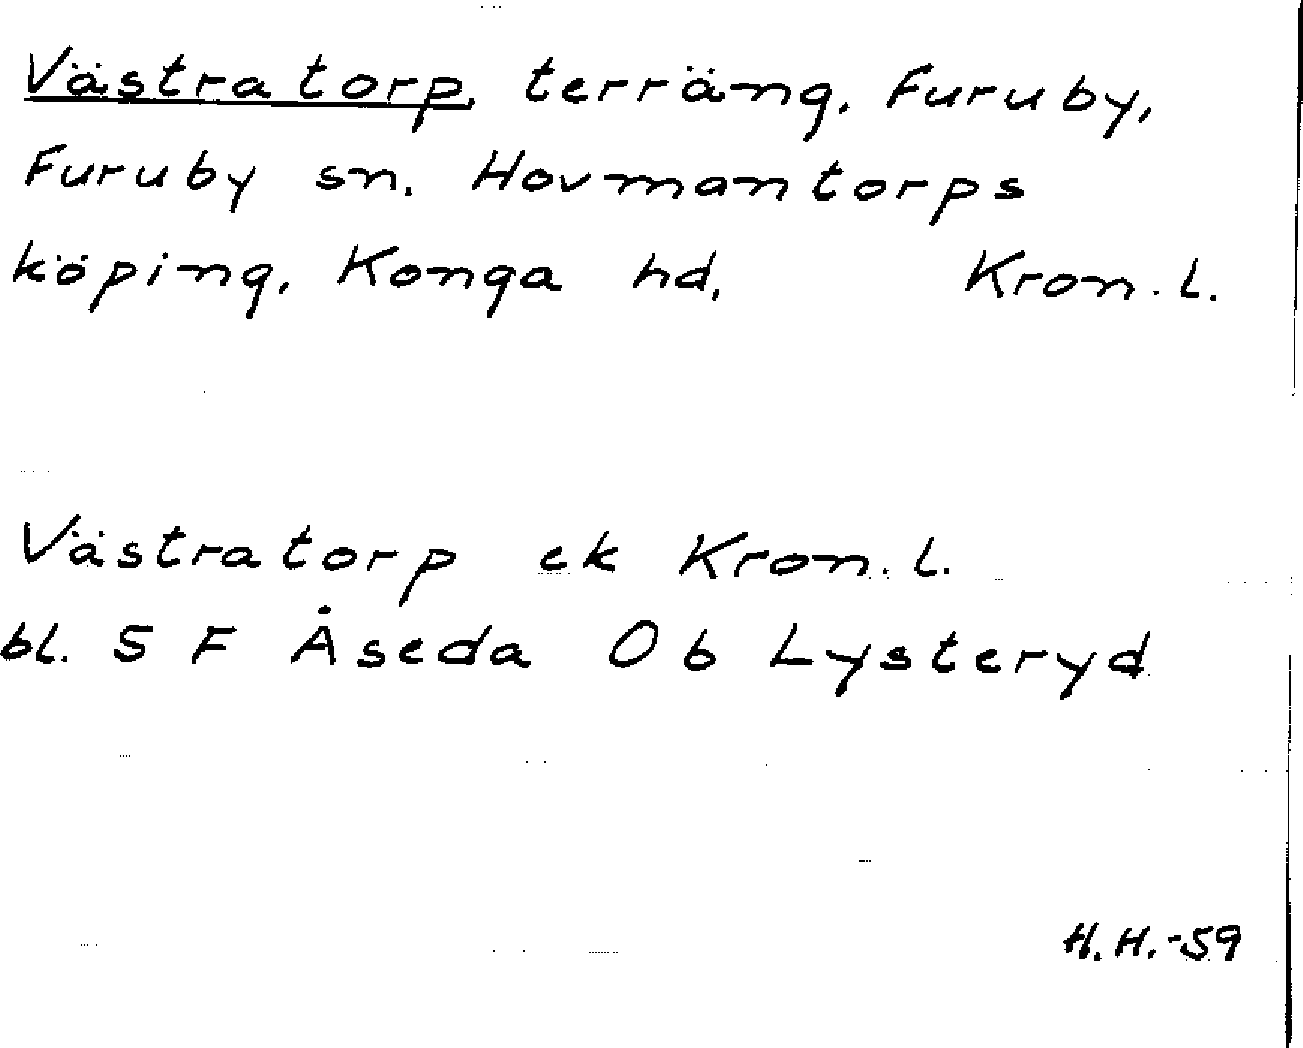 Västratorp, terräng, Furuby,
Furuby sn. Hovmantorps
köping, Konga hd, Kron. l.
Västratorp ek Kron. l.
bl. 5 F Åseda O b Lysteryd
H. H. -59